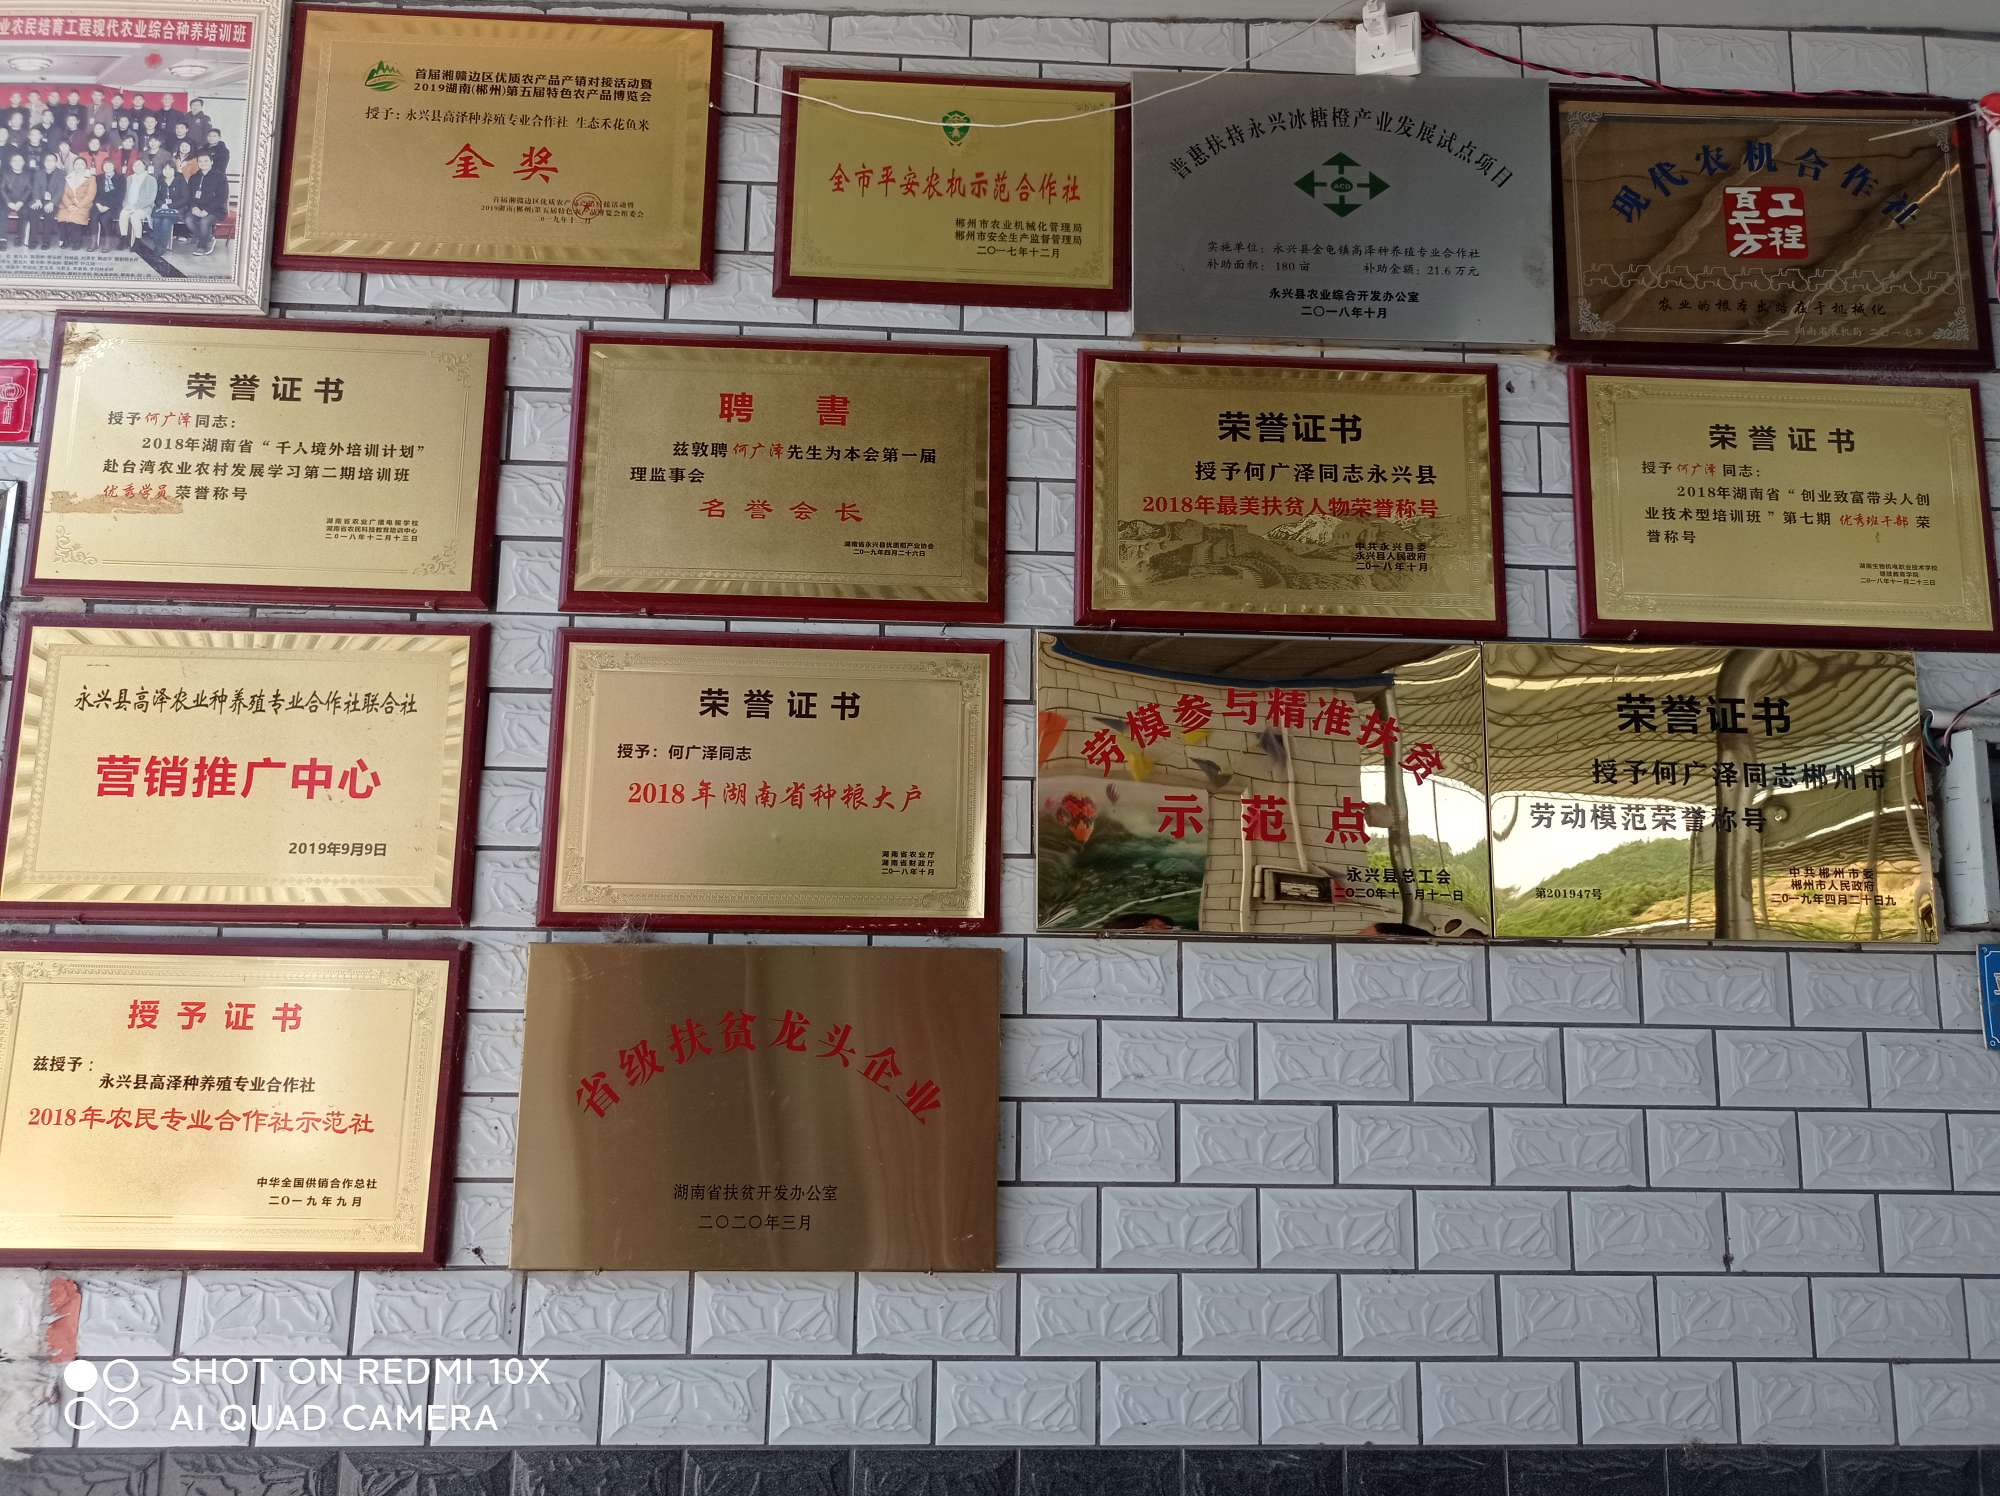 业农民培育工程现代农业综合种养培训班
首届湘赣边区优质农产品产销对接活动暨
2019湖南(郴州)第五届特色农产品博览会
授予：永兴县高泽种养殖专业合作社 生态禾花鱼米
金奖
首届湘赣边区优质农产品产销对接活动暨
2019湖南(郴州)第五届特色农产品博览会组委会
全市平安农机示范合作社
郴州市农业机械化管理局
郴州市安全生产监督管理局
二〇一七年十二月
普惠扶持永兴冰糖橙产业发展试点项目
实施单位：永兴县金龟镇高泽种养殖专业合作社
补助面积：180亩 补助金额：21.6万元
永兴县农业综合开发办公室
二〇一八年十月
现代农机合作社
百千万
工程
农业的根本出路在于机械化
湖南省农机局 二〇一七年
荣誉证书
授予何广泽同志：
2018年湖南省“千人境外培训计划”
赴台湾农业农村发展学习第二期培训班
优秀学员荣誉称号
湖南省农业广播电视学校
湖南省农民科技教育培训中心
二〇一八年十二月十三日
聘書
兹敦聘何广泽先生为本会第一届
理监事会
名誉会长
湖南省永兴县优质稻产业协会
二〇一九年四月二十六日
荣誉证书
授予何广泽同志永兴县
2018年最美扶贫人物荣誉称号
中共永兴县委
永兴县人民政府
二〇一八年十月
荣誉证书
授予何广泽同志：
2018年湖南省“创业致富带头人创
业技术型培训班”第七期 优秀班干部 荣
誉称号
湖南生物机电职业技术学校
继续教育学院
二〇一八年十一月二十三日
永兴县高泽农业种养殖专业合作社联合社
营销推广中心
2019年9月9日
荣誉证书
授予：何广泽同志
2018年湖南省种粮大户
湖南省农业厅
湖南省财政厅
二〇一八年十月
劳模参与精准扶贫
示范点
永兴县总工会
二〇二〇年十一月十一日
荣誉证书
授予何广泽同志郴州市
劳动模范荣誉称号
第201947号
中共郴州市委
郴州市人民政府
二〇一九年四月二十日九
授予证书
兹授予：
永兴县高泽种养殖专业合作社
2018年农民专业合作社示范社
中华全国供销合作总社
二〇一九年九月
省级扶贫龙头企业
湖南省扶贫开发办公室
二〇二〇年三月
SHOT ON REDMI 10X
AI QUAD CAMERA